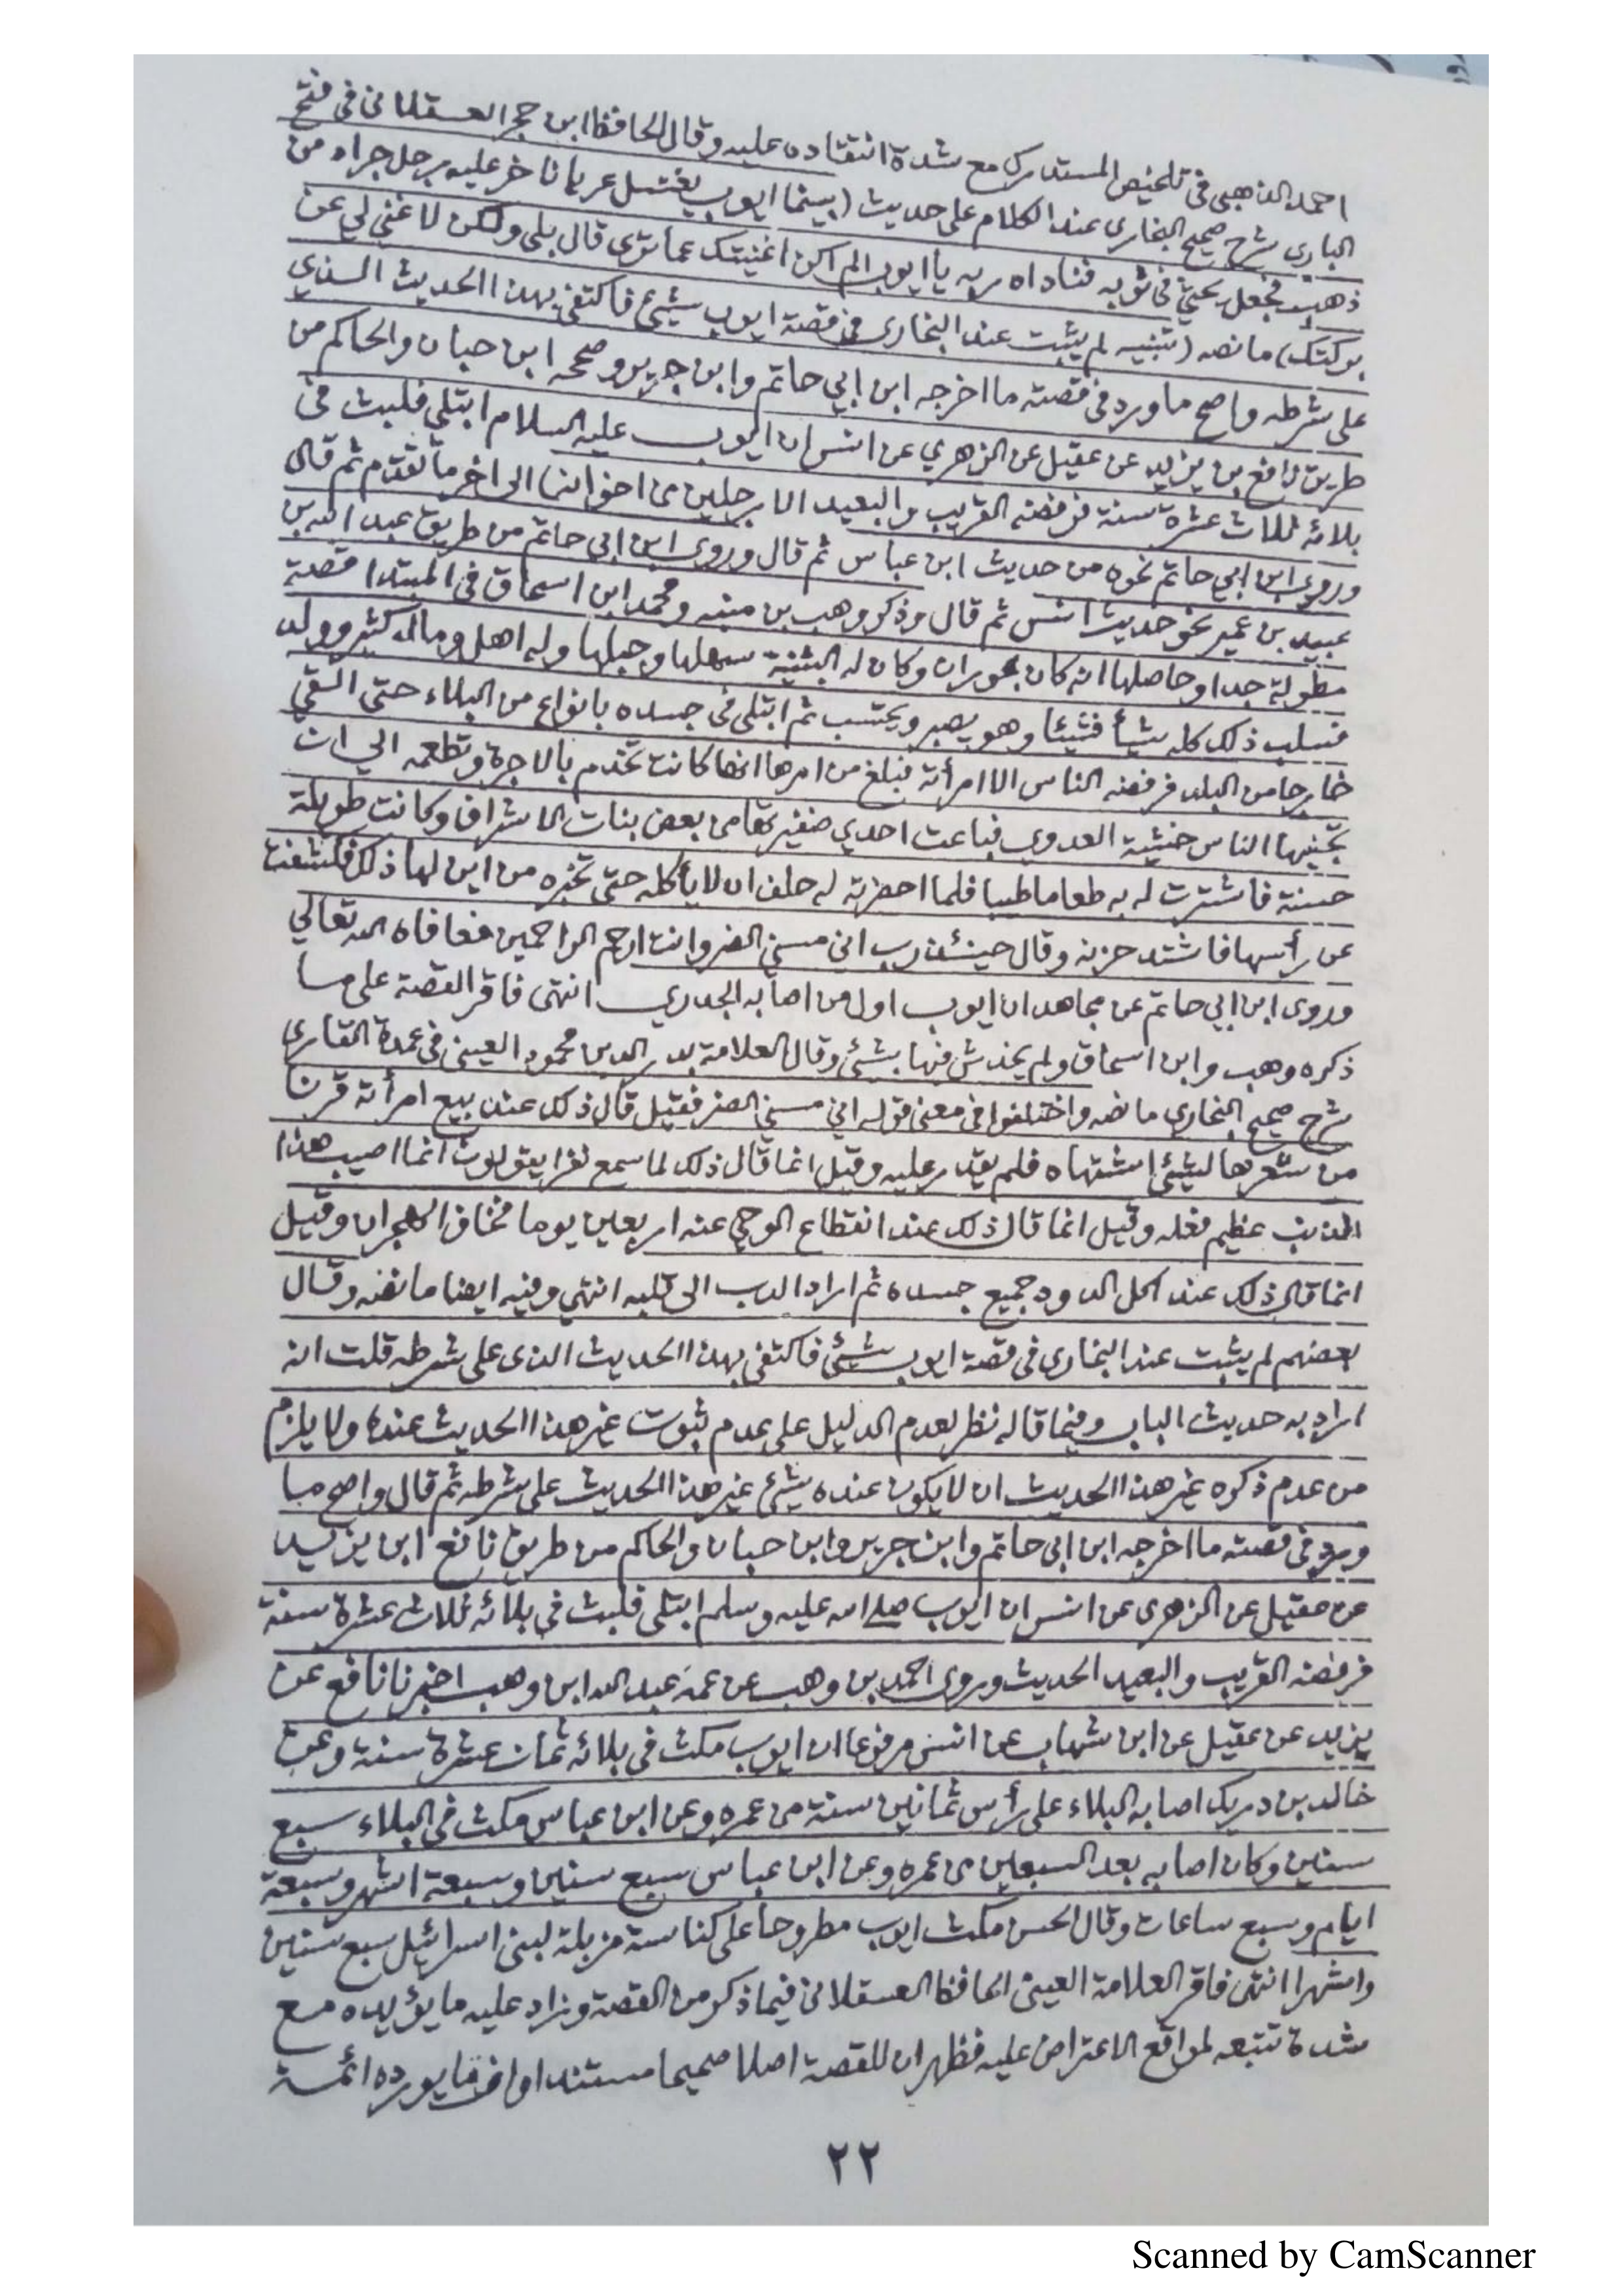 احمد الذهبي في تلخيص المستدرك مع شدة انتقاده عليه وقال الحافظ ابن حجر العسقلاني في فتح
الباري شرح صحيح البخاري عند الكلام على حديث (بينما ايوب يغتسل عريانا خر عليه رجل جراد من
ذهب فجعل يحثي في ثوبه فناداه ربه يا ايوب الم اكن اغنيتك عما ترى قال بلى ولكن لا غنى لي عن
بركتك) ما نصه (تنبيه لم يثبت عند البخاري في قصة ايوب شيئ فاكتفى بهذا الحديث الذي
على شرطه واصح ما ورد في قصته ما اخرجه ابن ابي حاتم وابن جرير وصححه ابن حبان والحاكم من
طريق نافع بن يزيد عن عقيل عن الزهري عن انس ان ايوب عليه السلام ابتلى فلبث في
بلائه ثلاث عشرة سنة فرفضه القريب والبعيد الا رجلين من اخوانه الى اخر ما تقدم ثم قال
وروى ابن ابي حاتم نحوه من حديث ابن عباس ثم قال وروى ابن ابي حاتم من طريق عبد الله بن
عبيد بن عمير نحو حديث انس ثم قال وذكر وهب بن منبه ومحمد ابن اسحاق في المبتدا قصة
مطولة جدا وحاصلها انه كان بحوران وكان له البثنية سهلها وجبلها وله اهل ومال كثير وولد
فسلب ذلك كله شيأ فشيئا وهو يصبر ويحتسب ثم ابتلى في جسده بانواع من البلاء حتى القي
خارجا من البلد فرفضه الناس الا امرأته فبلغ من امرها انها كانت تخدم بالاجرة وتطعمه الى ان
تجنبها الناس خشية العدوى فباعت احدى ضفيرتها من بعض بنات الاشراف وكانت طويلة
حسنة فاشترت له به طعاما طيبا فلما احضرته له حلف ان لا يأكله حتى تخبره من اين لها ذلك فكشفت
عن رأسها فاشتد حزنه وقال حينئذ رب اني مسني الضر وانت ارحم الراحمين فعافاه الله تعالى
وروى ابن ابي حاتم عن مجاهد ان ايوب اول من اصابه الجدري انتهى فاقر القصة على ما
ذكره وهب وابن اسحاق ولم يخدش فيها بشئ وقال العلامة بدر الدين محمود العيني في عمدة القاري
شرح صحيح البخاري ما نصه واختلفوا في معنى قوله اني مسني الضر فقيل قال ذلك عند بيع امرأته قرنا
من شعرها ليشئ اشتهاه فلم يقدر عليه وقيل انما قال ذلك لما سمع نفرا يقولون انما اصيب هذا
الذنب عظيم فعله وقيل انما قال ذلك عند انقطاع الوحي عنه اربعين يوما فخاف الهجران وقيل
انما قال ذلك عند اكل الدود جميع جسده ثم اراد الدب الى قلبه انتهى وفيه ايضا ما نصه وقال
بعضهم لم يثبت عند البخاري في قصة ايوب شيئ فاكتفى بهذا الحديث الذي على شرطه قلت انه
اراد به حديث الباب وفيما قاله نظر لعدم الدليل على عدم ثبوت غير هذا الحديث عنده ولا يلزم
من عدم ذكره غير هذا الحديث ان لا يكون عنده شيئ غير هذا الحديث على شرطه ثم قال واصح ما
ورد في قصته ما اخرجه ابن ابي حاتم وابن جرير وابن حبان والحاكم من طريق نافع ابن يزيد
عن عقيل عن الزهري عن انس ان ايوب صلى الله عليه وسلم ابتلى فلبث في بلائه ثلاث عشرة سنة
فرفضه القريب والبعيد الحديث وروى احمد بن وهب عن عمه عبد الله ابن وهب اخبرنا نافع عن
يزيد عن عقيل عن ابن شهاب عن انس مرفوعا ان ايوب مكث في بلائه ثمان عشرة سنة وعن
خالد بن دريك اصابه البلاء على رأس ثمانين سنة من عمره وعن ابن عباس مكث في البلاء سبع
سنين وكان اصابه بعد السبعين من عمره وعن ابن عباس سبع سنين وسبعة اشهر وسبعة
ايام وسبع ساعات وقال الحسن مكث ايوب مطروحا على كناسة مزبلة لبني اسرائيل سبع سنين
واشهرا انتهى فاقر العلامة العيني الحافظ العسقلاني فيما ذكر من القصة وزاد عليه ما يؤيده مع
شدة تتبعه لمواقع الاعتراض عليه فظهر ان للقصة اصلا صحيحا مستندا يورده ائمة
٢٢
Scanned by CamScanner